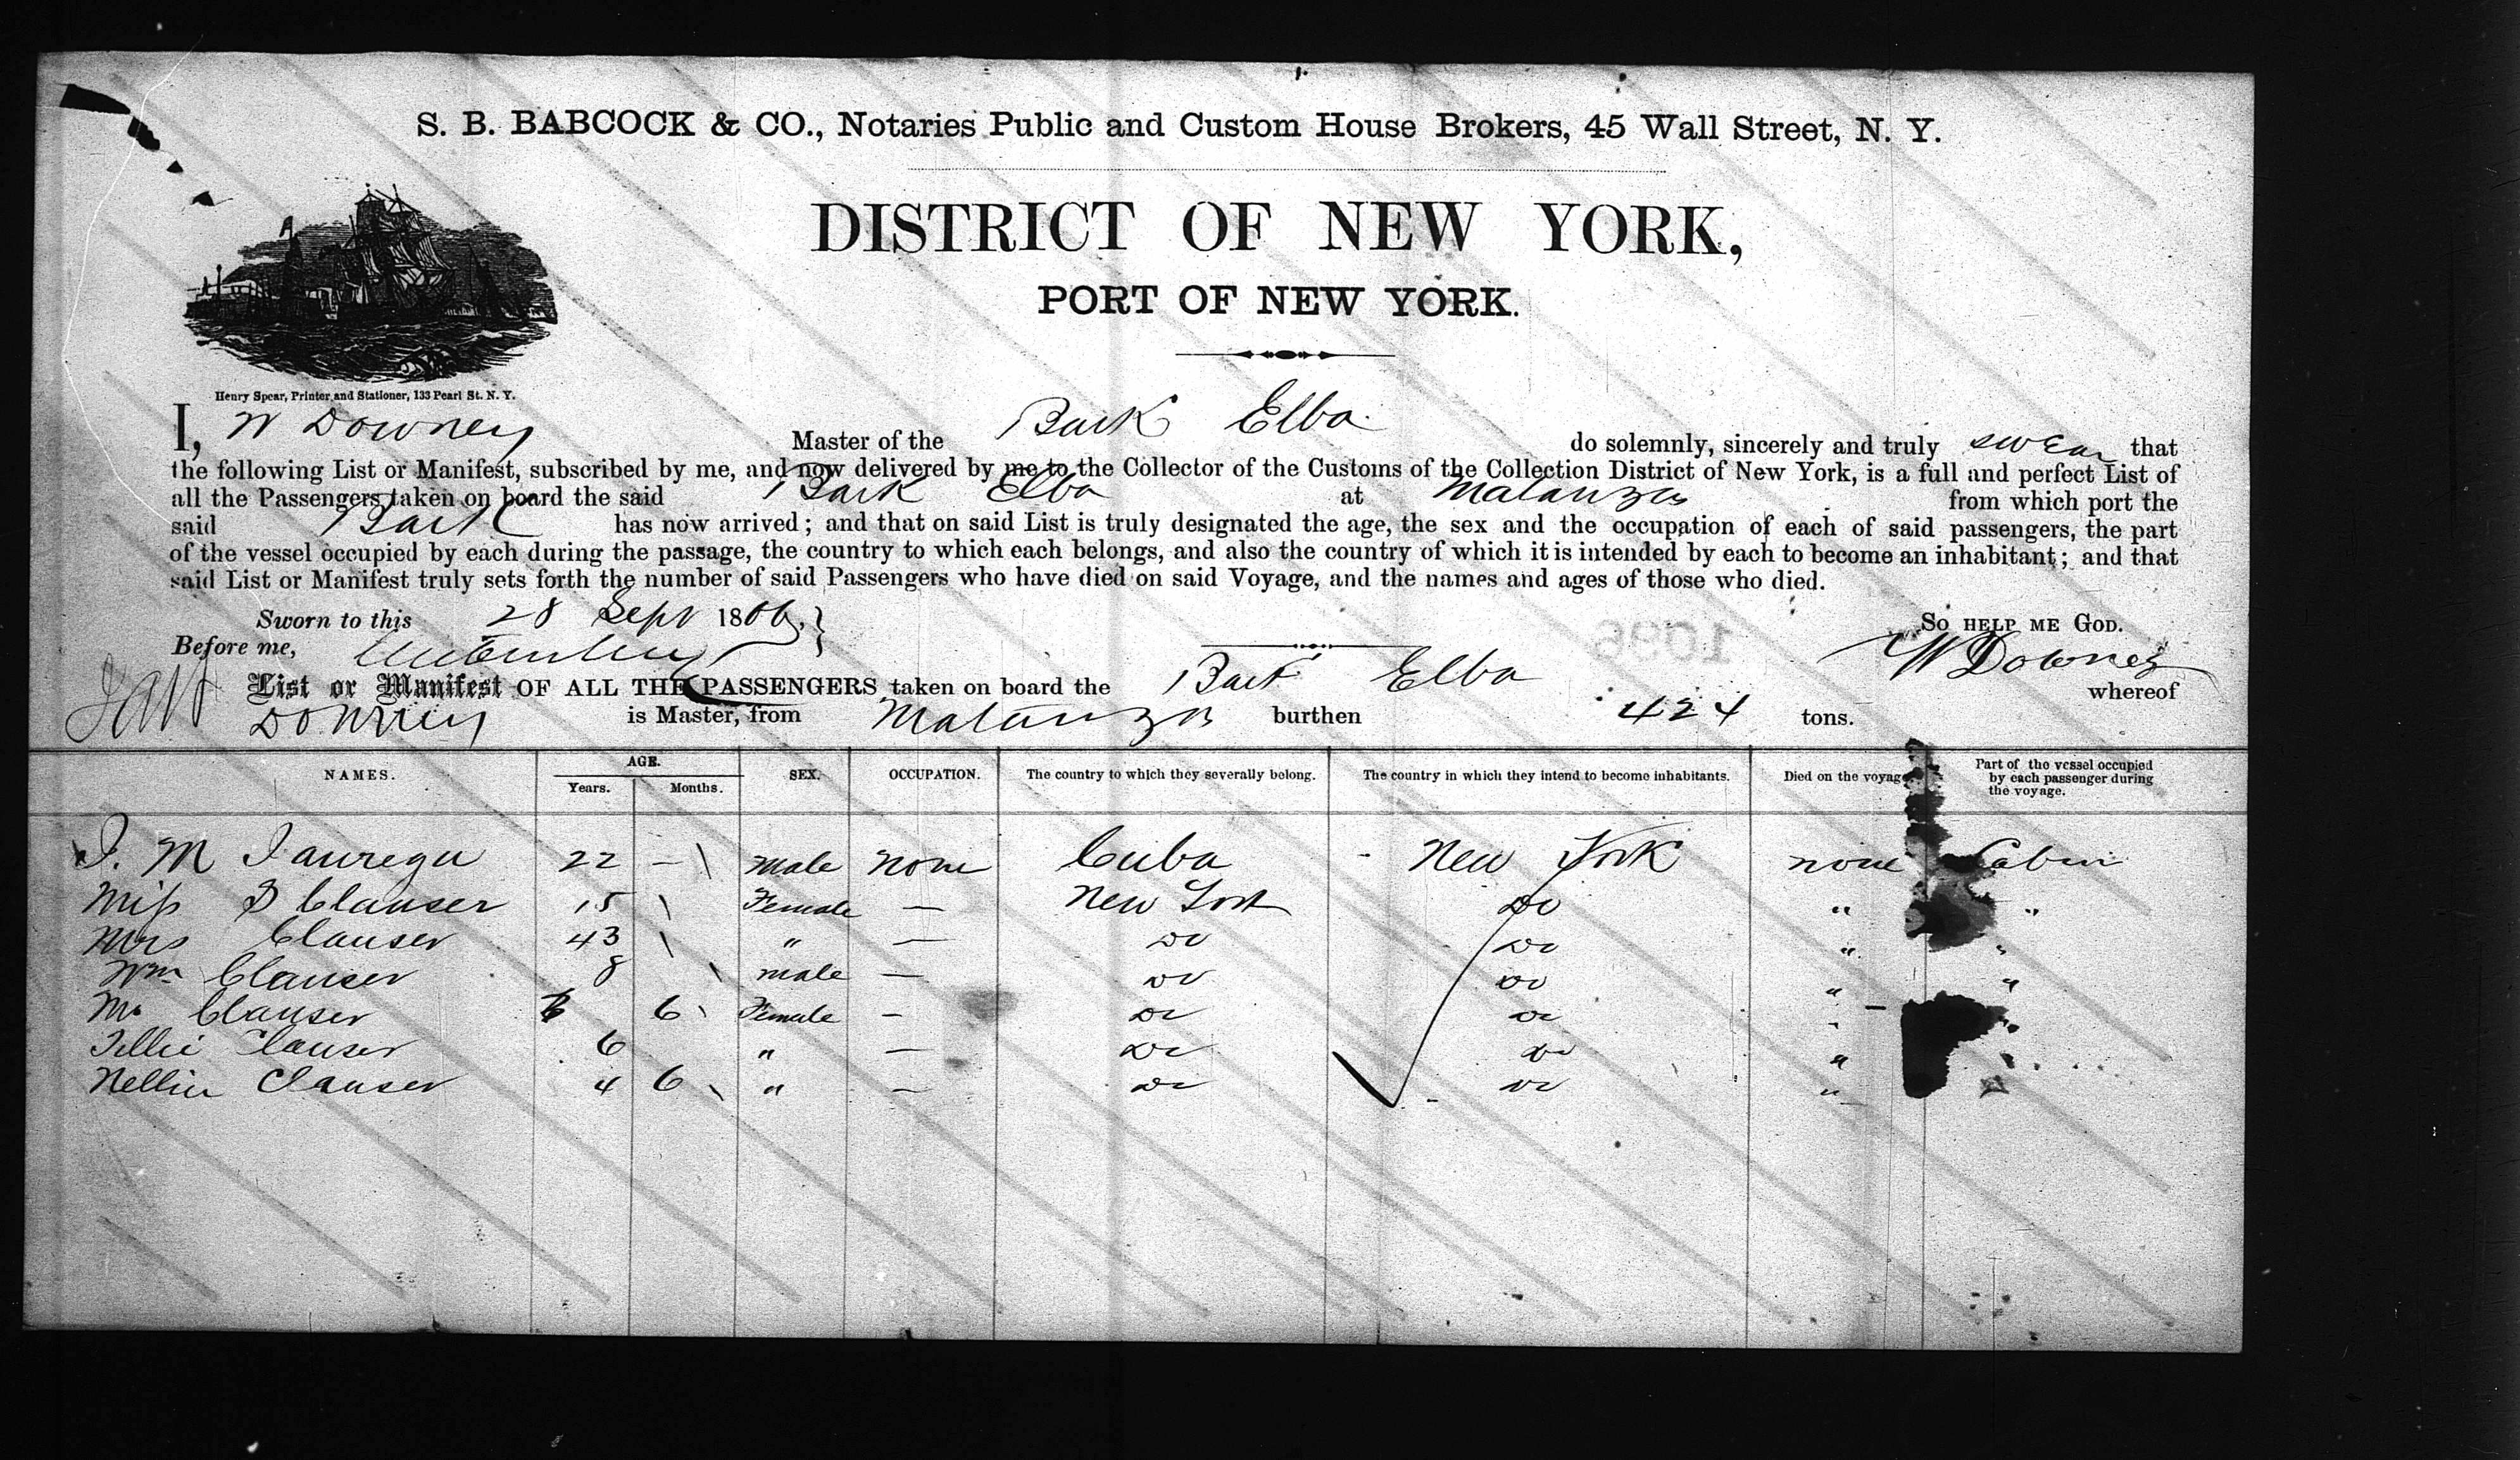 S. B. BABCOCK & CO., Notaries Public and Custom House Brokers, 45 Wall Street, N. Y.
DISTRICT OF NEW YORK,
PORT OF NEW YORK.
Henry Spear, Printer and Stationer, 133 Pearl St. N. Y.
I, W Downey Master of the Bark Elba do solemnly, sincerely and truly swear that
the following List or Manifest, subscribed by me, and now delivered by me to the Collector of the Customs of the Collection District of New York, is a full and perfect List of
all the Passengers taken on board the said Bark Elba at Matanzas from which port the
said Bark has now arrived; and that on said List is truly designated the age, the sex and the occupation of each of said passengers, the part
of the vessel occupied by each during the passage, the country to which each belongs, and also the country of which it is intended by each to become an inhabitant; and that
said List or Manifest truly sets forth the number of said Passengers who have died on said Voyage, and the names and ages of those who died.
Sworn to this 28 Sept 1866, SO HELP ME GOD.
Before me, W Downey
1096
List or Manifest OF ALL THE PASSENGERS taken on board the Bark Elba whereof
Downey is Master, from Matanzas burthen 424 tons.
NAMES. AGE. Years. Months. SEX. OCCUPATION. The country to which they severally belong. The country in which they intend to become inhabitants. Died on the voyage Part of the vessel occupied by each passenger during the voyage.
J. M Jauregu 22 — Male None Cuba New York none Cabin
Miss S Clauser 15 Female — New York Do " "
Mrs Clauser 43 " — Do Do " "
Wm Clauser 8 male — Do Do " "
M. Clauser 6 Female — Do Do "
Tillie Clauser 6 " — Do Do " "
Nellie Clauser 4 6 " — Do Do "